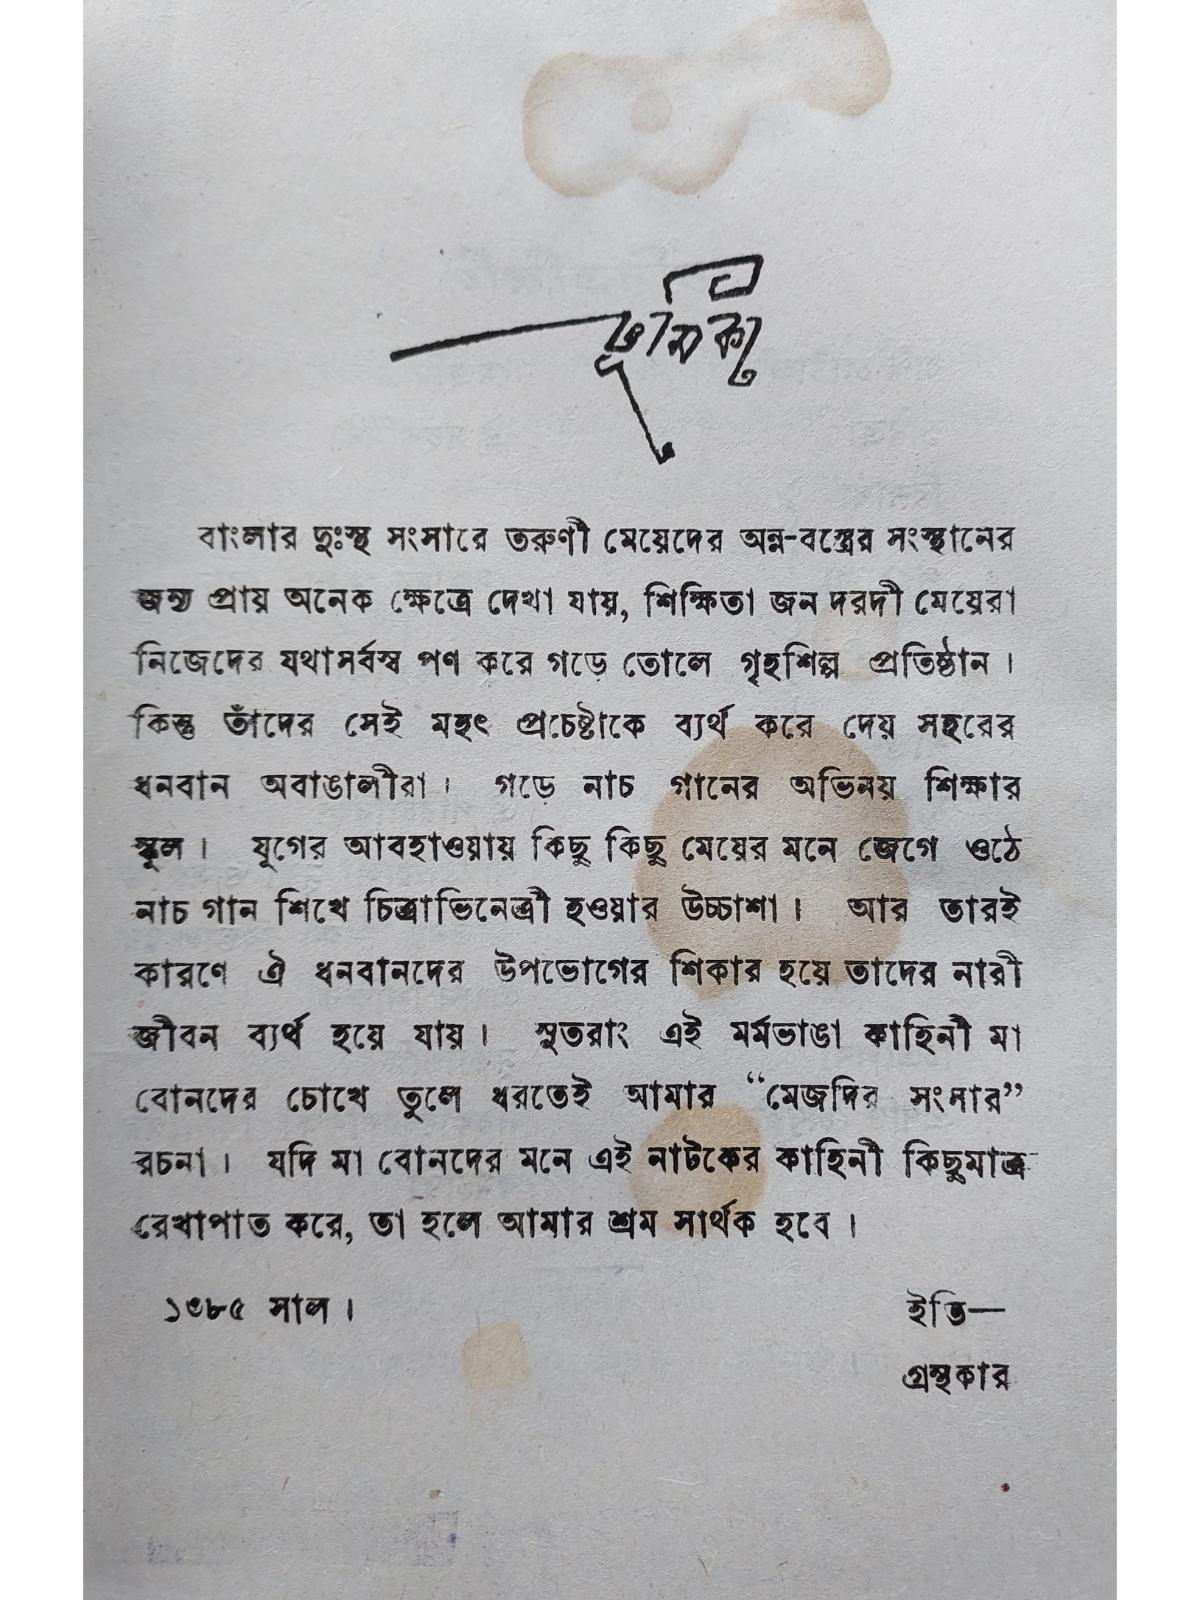 ভূমিকা
বাংলার দুঃস্থ সংসারে তরুণী মেয়েদের অন্ন-বস্ত্রের সংস্থানের
জন্য প্রায় অনেক ক্ষেত্রে দেখা যায়, শিক্ষিতা জন দরদী মেয়েরা
নিজেদের যথাসর্বস্ব পণ করে গড়ে তোলে গৃহশিল্প প্রতিষ্ঠান।
কিন্তু তাঁদের সেই মহৎ প্রচেষ্টাকে ব্যর্থ করে দেয় সহরের
ধনবান অবাঙালীরা। গড়ে নাচ গানের অভিনয় শিক্ষার
স্কুল। যুগের আবহাওয়ায় কিছু কিছু মেয়ের মনে জেগে ওঠে
নাচ গান শিখে চিত্রাভিনেত্রী হওয়ার উচ্চাশা। আর তারই
কারণে ঐ ধনবানদের উপভোগের শিকার হয়ে তাদের নারী
জীবন ব্যর্থ হয়ে যায়। সুতরাং এই মর্মভাঙা কাহিনী মা
বোনদের চোখে তুলে ধরতেই আমার “মেজদির সংসার”
রচনা। যদি মা বোনদের মনে এই নাটকের কাহিনী কিছুমাত্র
রেখাপাত করে, তা হলে আমার শ্রম সার্থক হবে।
১৩৮৫ সাল। ইতি—
গ্রন্থকার